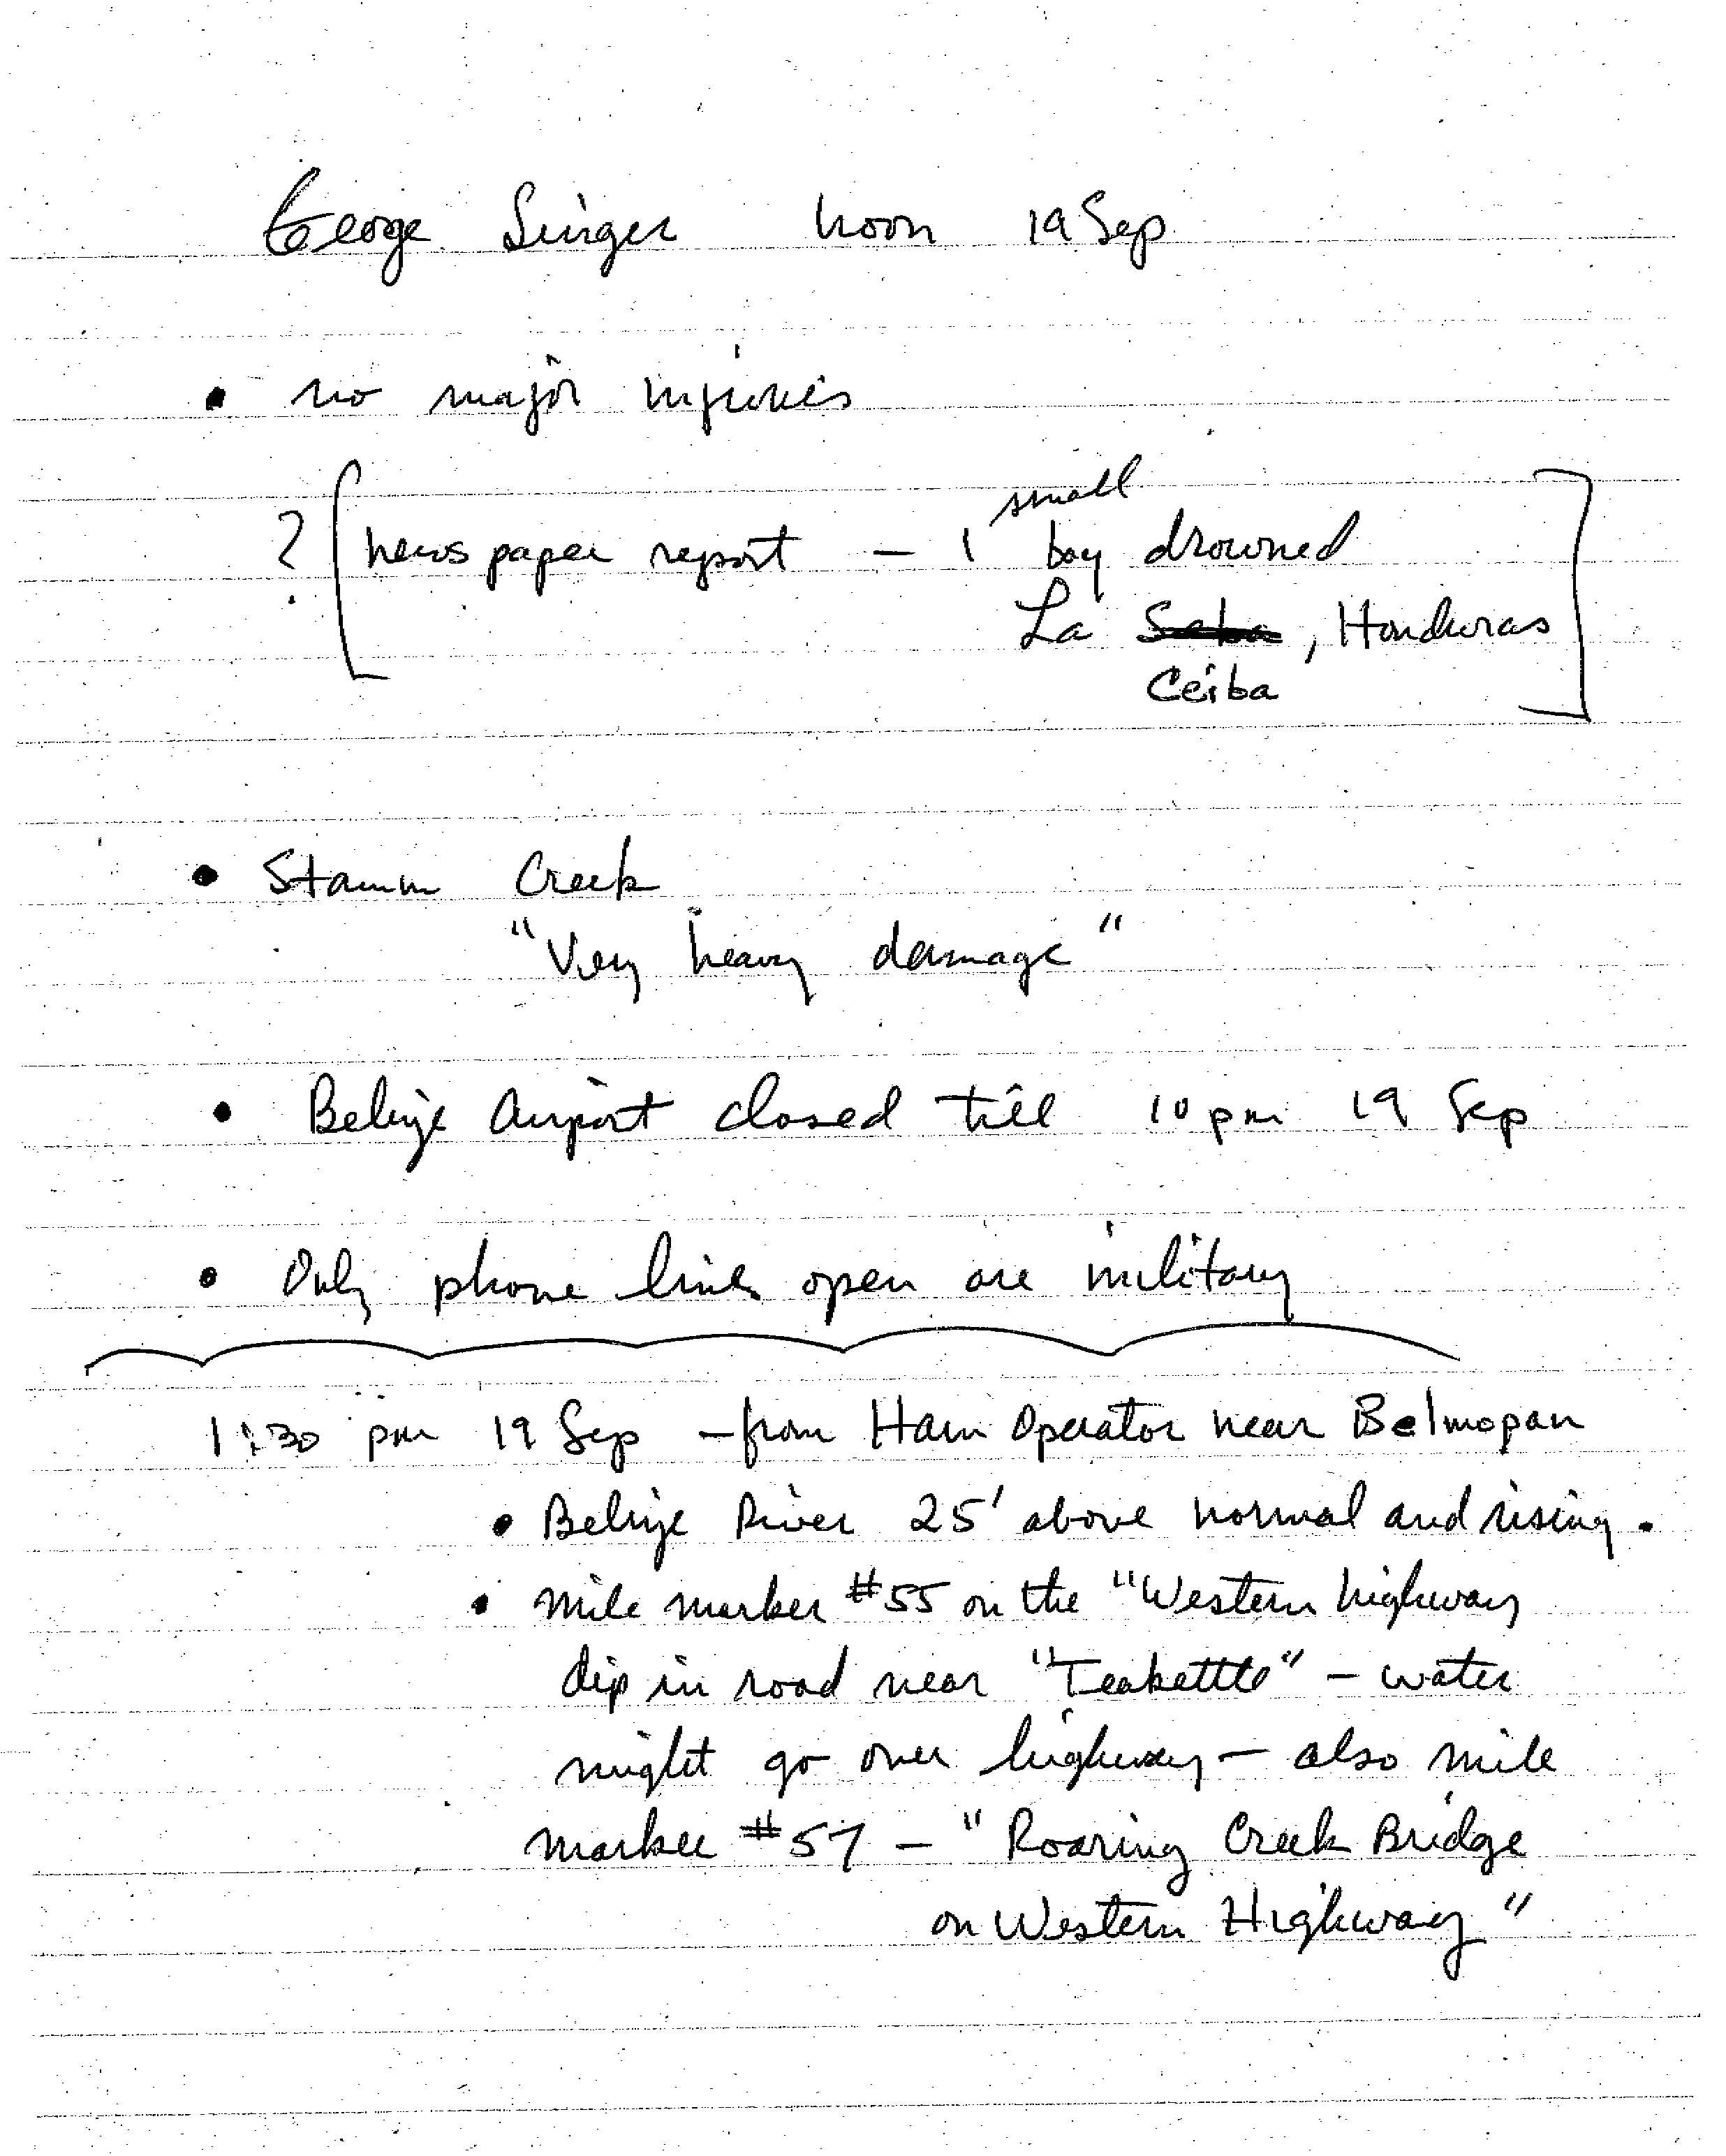 George Singer noon 19 Sep
• no major injuries
small
? [newspaper report – 1 boy drowned
La Saba, Honduras]
Ceiba
• Stamm Creek
"Very heavy damage"
• Belize Airport closed till 10 pm 19 Sep
• Only phone lines open are military
1:30 pm 19 Sep – from Ham Operator near Belmopan
• Belize River 25' above normal and rising.
• Mile marker #55 on the "Western highway
dip in road near "Teakettle" – water
might go over highway – also mile
marker #57 – "Roaring Creek Bridge
on Western Highway"